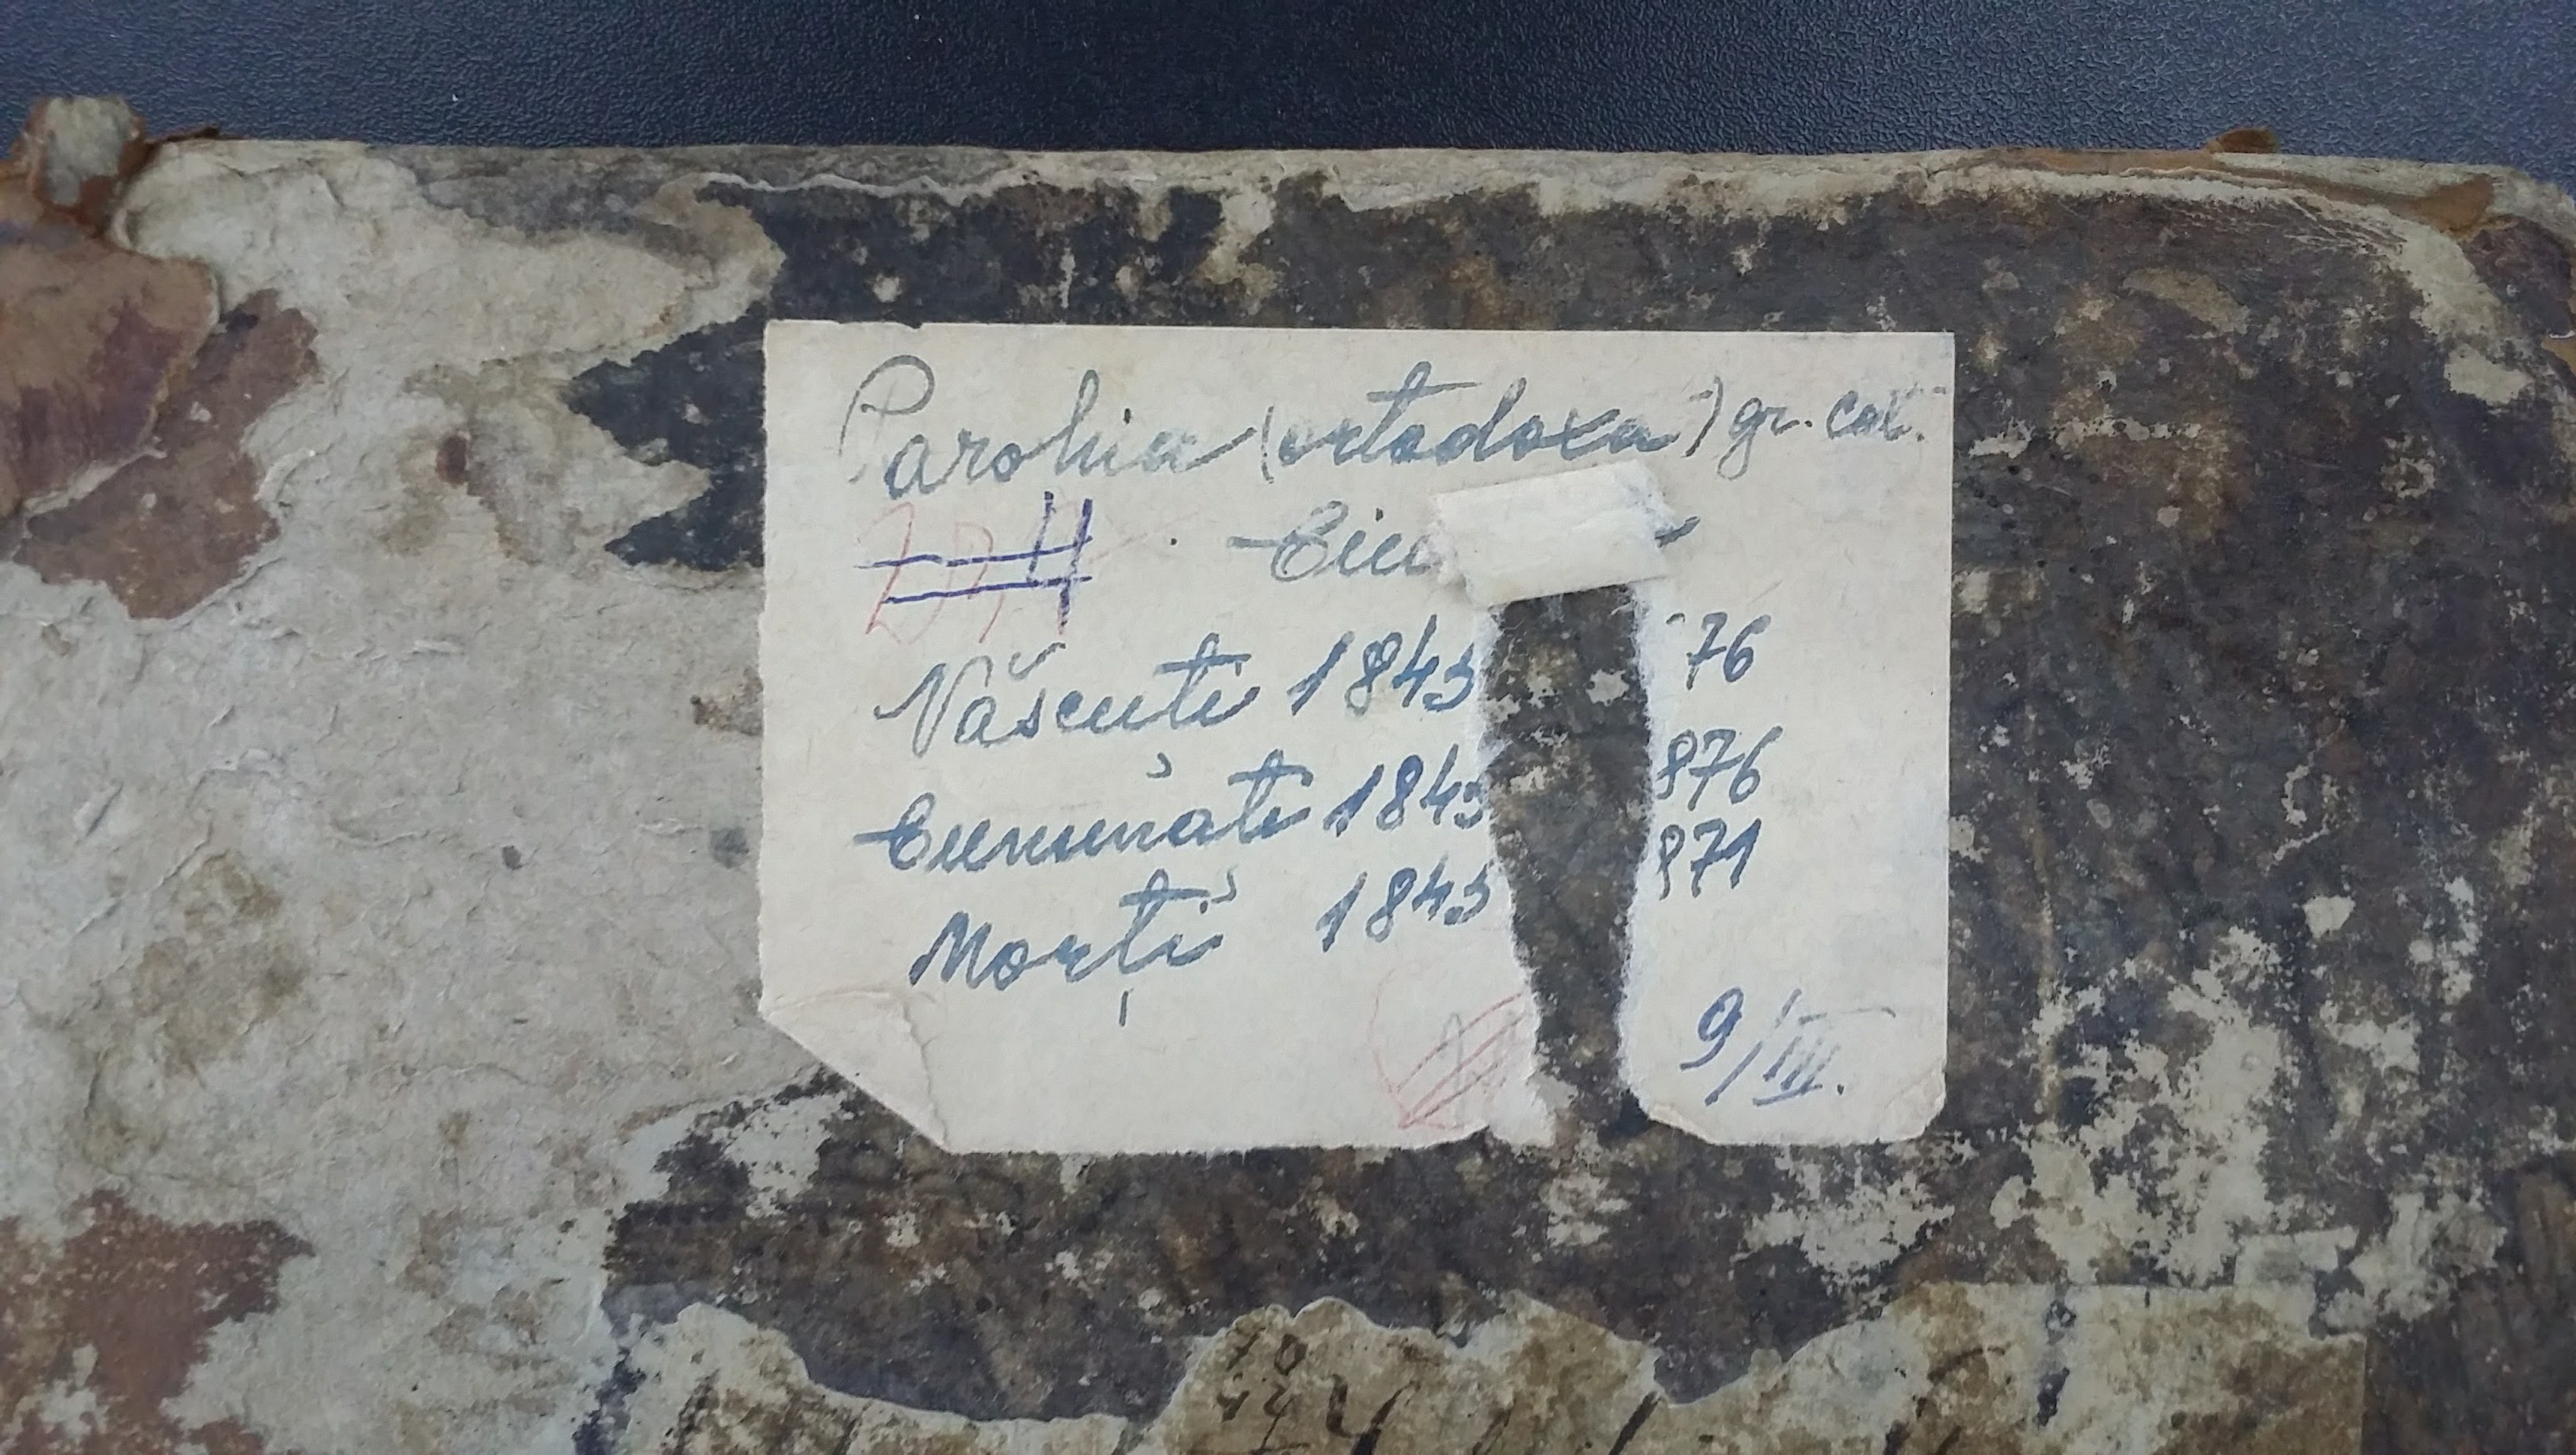 Parohia (ortodoxa) gr. cat.
Născuti 1843 76
Cununați 1843 876
Morți 1843 871
9/III.